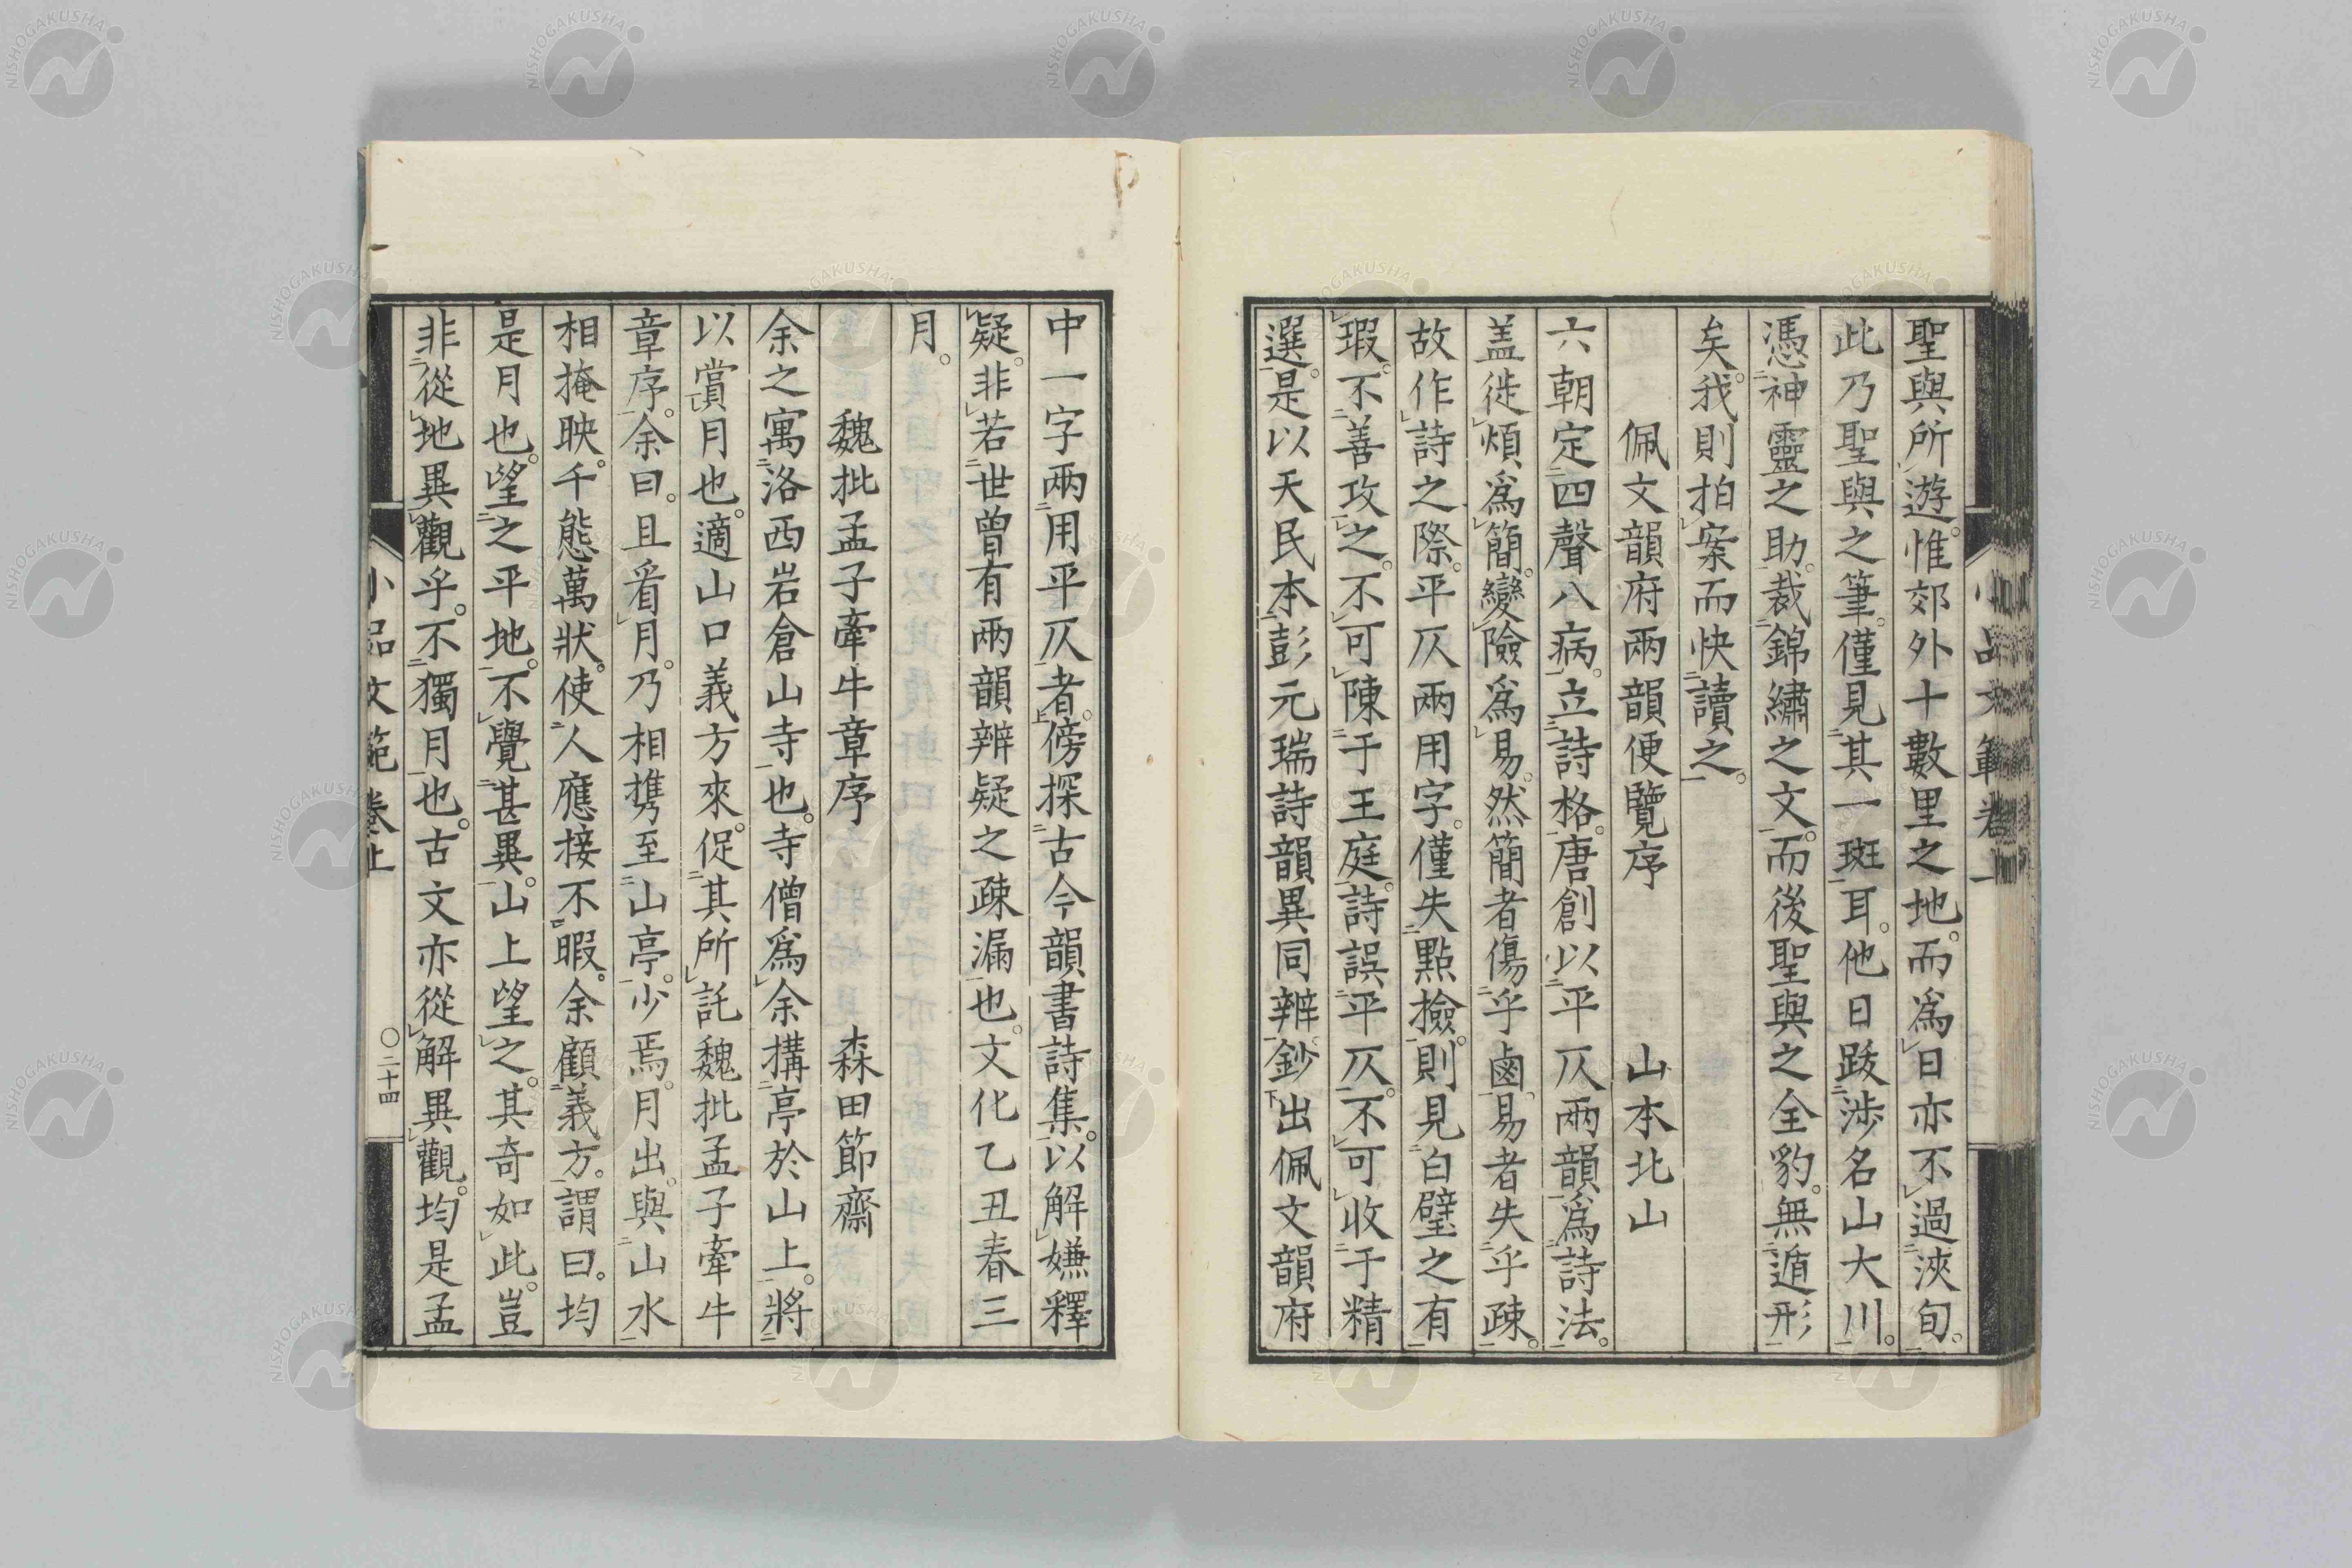 聖與所遊。惟郊外十數里之地。而爲日亦不過浹旬。
此乃聖與之筆。僅見其一斑耳。他日跋涉名山大川。
憑神靈之助。裁錦繡之文。而後聖與之全豹。無遁形
矣。我則拍案而快讀之。
佩文韻府兩韻便覽序 山本北山
六朝定四聲八病。立詩格。唐創以平仄兩韻爲詩法。
盖徙煩爲簡。變險爲易。然簡者傷乎鹵。易者失乎疎。
故作詩之際。平仄兩用字。僅失點撿。則見白璧之有
瑕。不善攻之。不可陳于王庭。詩誤平仄。不可收于精
選。是以天民本彭元瑞詩韻異同辨。鈔出佩文韻府
中一字兩用平仄者。傍探古今韻書詩集。以解嫌釋
疑。非若世曾有兩韻辨疑之疎漏也。文化乙丑春三
月。
魏批孟子牽牛章序 森田節齋
余之寓洛西岩倉山寺也。寺僧爲余搆亭於山上。將
以賞月也。適山口義方來。促其所託魏批孟子牽牛
章序。余曰。且看月。乃相携至山亭。少焉。月出。與山水
相掩映。千態萬狀。使人應接不暇。余顧義方。謂曰。均
是月也。望之平地。不覺甚異。山上望之。其奇如此。豈
非從地異觀乎。不獨月也。古文亦從解異觀。均是孟
小品文範 卷上 〇二十四